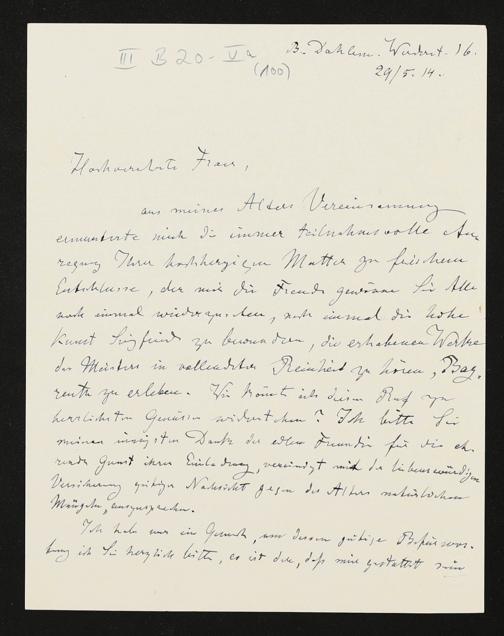 III B 20 - Va
(100)
B. Dahlem. Werderst. 16.
29/5. 14.
Hochverehrte Frau,
aus meines Alters Vereinsamung
ermunterte mich die immer teilnahmsvolle An-
regung Ihrer hochherzigen Mutter zu frischem
Entschlusse, der mir die Freude gewönne Sie Alle
noch einmal wiederzusehen, noch einmal die hohe
Kunst Siegfrieds zu bewundern, die erhabenen Werke
des Meisters in vollendeter Reinheit zu hören, Bay-
reuth zu erleben. Wie könnte ich diesem Ruf zu
herrlichsten Genüssen widerstehen? Ich bitte Sie
meinen innigsten Dank der edlen Freundin für die eh-
rende Gunst ihrer Einladung, vereinigt mit der liebenswürdigen
Versicherung gütiger Nachsicht gegen des Alters natürlichen
Mängeln, auszusprechen.
Ich habe nur ein Gesuch, um dessen gütige Befürwor-
tung ich Sie herzlich bitte, es ist der, daß mir gestattet sein